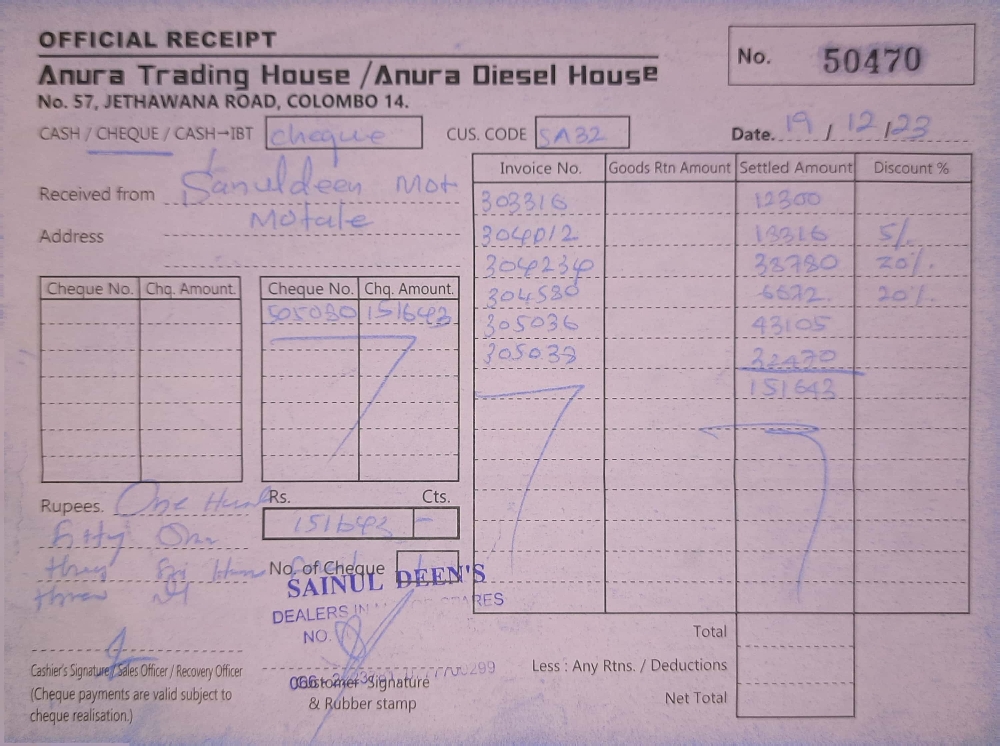 OFFICIAL RECEIPT
No. 50470
Anura Trading House / Anura Diesel House
No. 57, JETHAWANA ROAD, COLOMBO 14.
CASH / CHEQUE / CASH→IBT cheque
CUS. CODE SA32
Date. 19 / 12 / 23
Received from Sanuldeen Mot
Address Motale
Invoice No. Goods Rtn Amount Settled Amount Discount %
303316 12300
304012 13316 5/.
304234 38780 20/.
304530 6672 20/.
305036 43105
305038 22470
151643
Cheque No. Chq. Amount.
Cheque No. Chq. Amount.
505030 151643
Rupees. One
Fifty One
Rs. Cts.
151643 -
No. of Cheque
SAINUL DEEN'S
DEALERS IN
NO.
Cashier's Signature / Sales Officer / Recovery Officer
(Cheque payments are valid subject to
cheque realisation.)
Customer Signature
& Rubber stamp
Total
Less : Any Rtns. / Deductions
Net Total